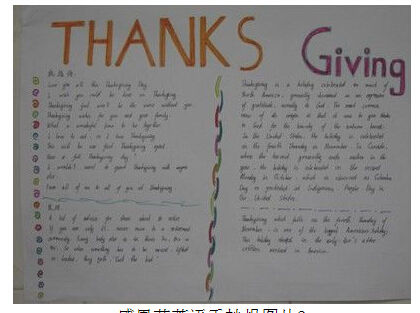 THANKS Giving
Love you all this Thanksgiving Day.
I wish you will be here on Thanksgiving.
Thanksgiving just won't be the same without you.
Thanksgiving wishes for you and your family.
What a wonderful time to be together
I have to eat, so I love Thanksgiving.
This will be our first Thanksgiving
Have a full Thanksgiving day!
I wouldn't want to spend Thanksgiving with anyone
else.
From all of us to all of you at Thanksgiving
A bit of advice for those about to retire
If you are only 65, never move to a retirement
community. Every body else is in their
so when something has to be moved, lifted
or loaded, they yell, "Get the kid."
Thanksgiving is a holiday celebrated in much of
North America, generally observed as an expression
of gratitude, usually to God. The most common
view of its origin is that it was to give thanks
to God for the bounty of the autumn harvest.
In the United States, the holiday is celebrated
on the fourth Thursday in November. In Canada,
where the harvest generally ends earlier in the
year, the holiday is celebrated on the second
Monday in October, which is observed as Columbus
Day or protested as Indigenous Peoples Day in
the United States.
Thanksgiving which falls on the fourth Thursday of
November, is one of the biggest American holidays.
This holiday
settlers in America.